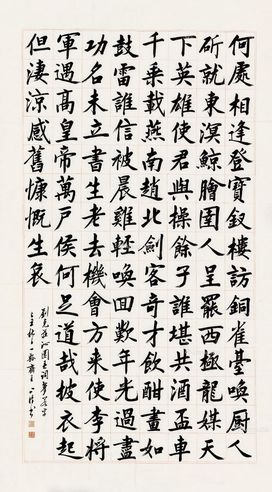 何處相逢登寶釵樓訪銅雀臺喚厨人
斫就東溟鯨膾圉人呈罷西極龍媒天
下英雄使君與操餘子誰堪共酒盃車
千乘載燕南趙北劍客奇才飲酣畫如
鼓雷誰信被晨雞輕喚回歎年光過盡
功名未立書生老去機會方來使李將
軍遇高皇帝萬戶侯何足道哉披衣起
但淒涼感舊慷慨生哀
劉克莊沁園春詞夢孚若